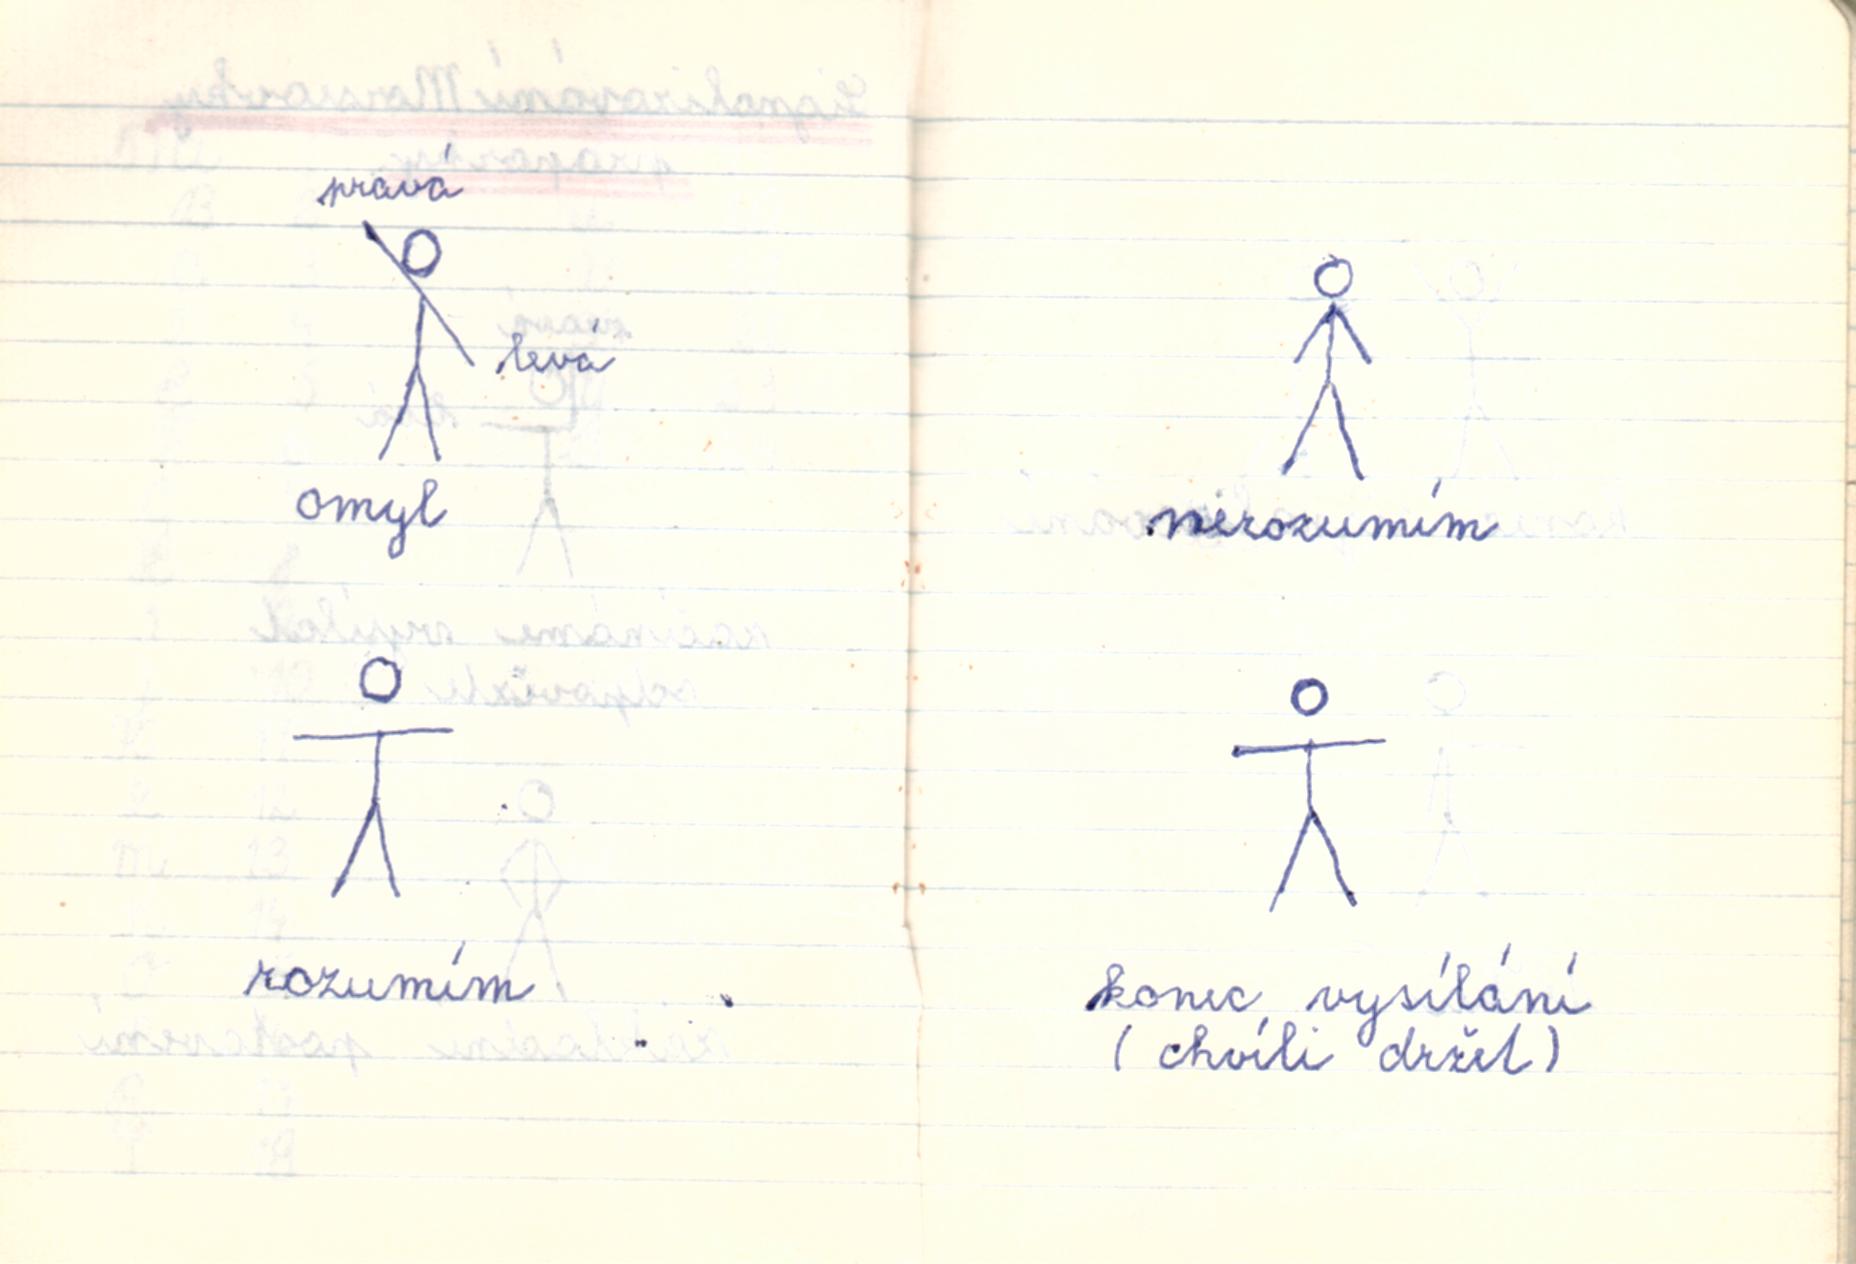 pravá
levá
omyl
nerozumím
rozumím
konec vysílání
(chvíli držet)